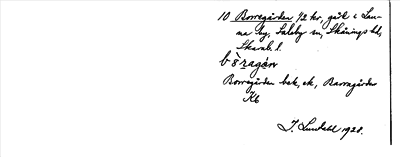 10 Borregården 1/2 kr, gård i Lau-
na by, Saleby sn, Skånings hd,
Skarab. l.
bòragán
Borregården bek, ek, Barragården
Kb
J. Lundahl 1928.